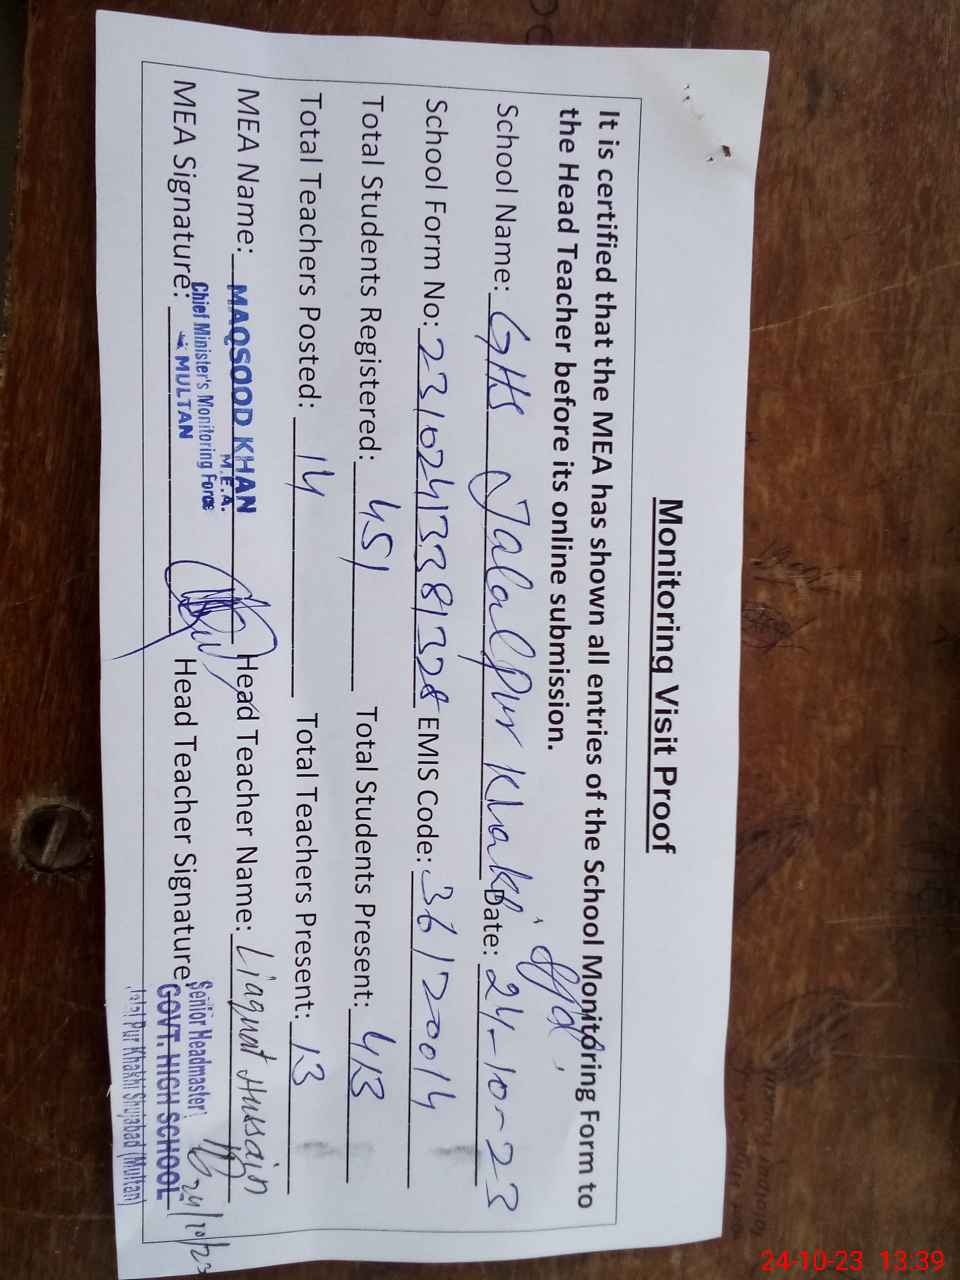 Monitoring Visit Proof
It is certified that the MEA has shown all entries of the School Monitoring Form to
the Head Teacher before its online submission.
School Name: GHS Jalalpur Khakhi Date: 24-10-23
School Form No: 23102413381328 EMIS Code: 36120014
Total Students Registered: 451 Total Students Present: 413
Total Teachers Posted: 14 Total Teachers Present: 13
MEA Name: MAQSOOD KHAN Head Teacher Name: Liaquat Hussain
M.E.A.
Chief Minister's Monitoring Force
MULTAN
MEA Signature: Head Teacher Signature:
Senior Headmaster
GOVT. HIGH SCHOOL
Jalal Pur Khakhi Shujabad (Multan)
24/10/23
24-10-23 13:39